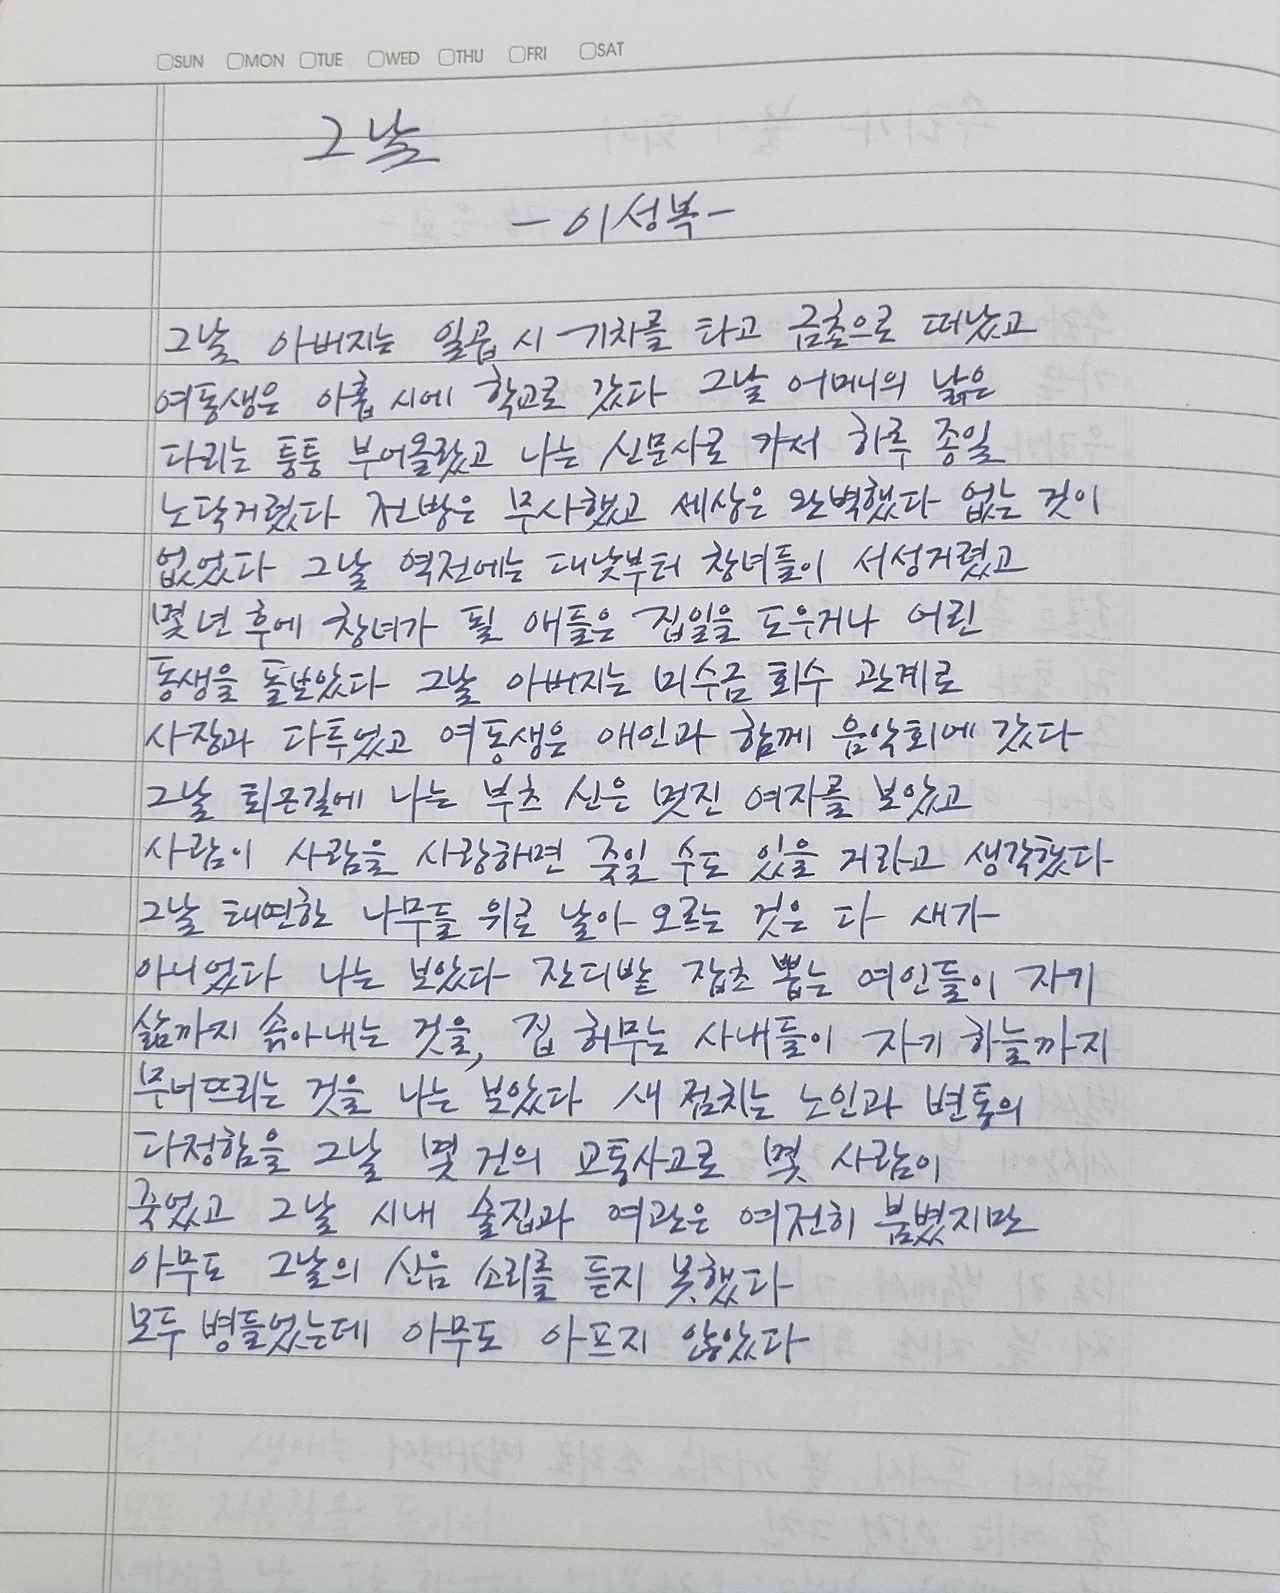 SUN MON TUE WED THU FRI SAT
그날
- 이성복 -
그날 아버지는 일곱 시 기차를 타고 금촌으로 떠났고
여동생은 아홉 시에 학교로 갔다 그날 어머니의 낡은
다리는 퉁퉁 부어올랐고 나는 신문사로 가서 하루 종일
노닥거렸다 전방은 무사했고 세상은 완벽했다 없는 것이
없었다 그날 역전에는 대낮부터 창녀들이 서성거렸고
몇 년 후에 창녀가 될 애들은 집일을 도우거나 어린
동생을 돌보았다 그날 아버지는 미수금 회수 관계로
사장과 다투었고 여동생은 애인과 함께 음악회에 갔다
그날 퇴근길에 나는 부츠 신은 멋진 여자를 보았고
사람이 사람을 사랑하면 죽일 수도 있을 거라고 생각했다
그날 태연한 나무들 위로 날아 오르는 것은 다 새가
아니었다 나는 보았다 잔디밭 잡초 뽑는 여인들이 자기
삶까지 솎아내는 것을, 집 허무는 사내들이 자기 하늘까지
무너뜨리는 것을 나는 보았다 새 점치는 노인과 변통의
다정함을 그날 몇 건의 교통사고로 몇 사람이
죽었고 그날 시내 술집과 여관은 여전히 붐볐지만
아무도 그날의 신음 소리를 듣지 못했다
모두 병들었는데 아무도 아프지 않았다